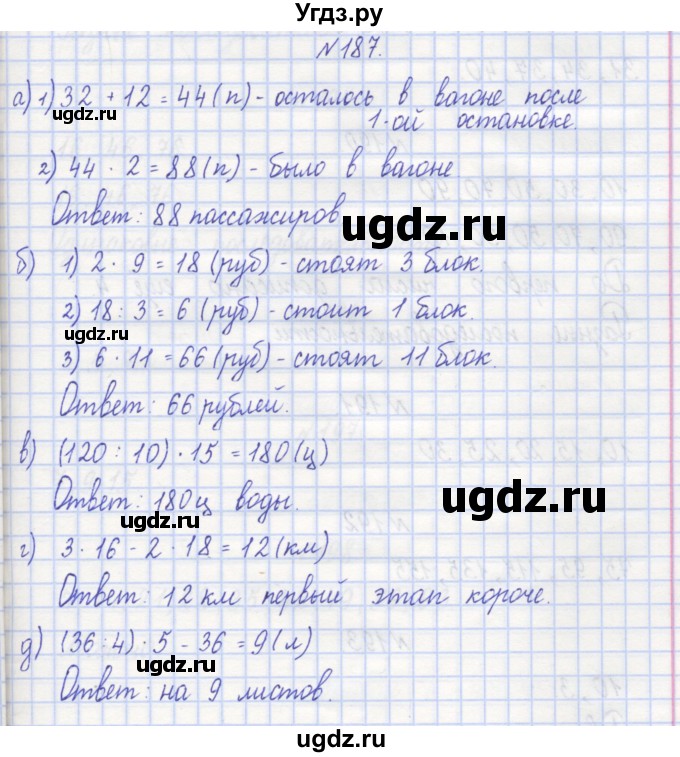 Угдз.ру
№187.
а) 1) 32 + 12 = 44 (п) - осталось в вагоне после
1-ой остановке.
ugdz.ru
2) 44 · 2 = 88 (п) - было в вагоне
Ответ: 88 пассажиров
ugdz.ru
б) 1) 2 · 9 = 18 (руб) - стоят 3 блок.
ugdz.ru
2) 18 : 3 = 6 (руб) - стоит 1 блок.
ugdz.ru
3) 6 · 11 = 66 (руб) - стоят 11 блок.
Ответ: 66 рублей.
в) (120 : 10) · 15 = 180 (ц)
ugdz.ru
Ответ: 180 ц воды.
ugdz.ru
г) 3 · 16 - 2 · 18 = 12 (км)
Ответ: 12 км первый этап короче.
д) (36 : 4) · 5 - 36 = 9 (л)
ugdz.ru
Ответ: на 9 листов.
ugdz.ru